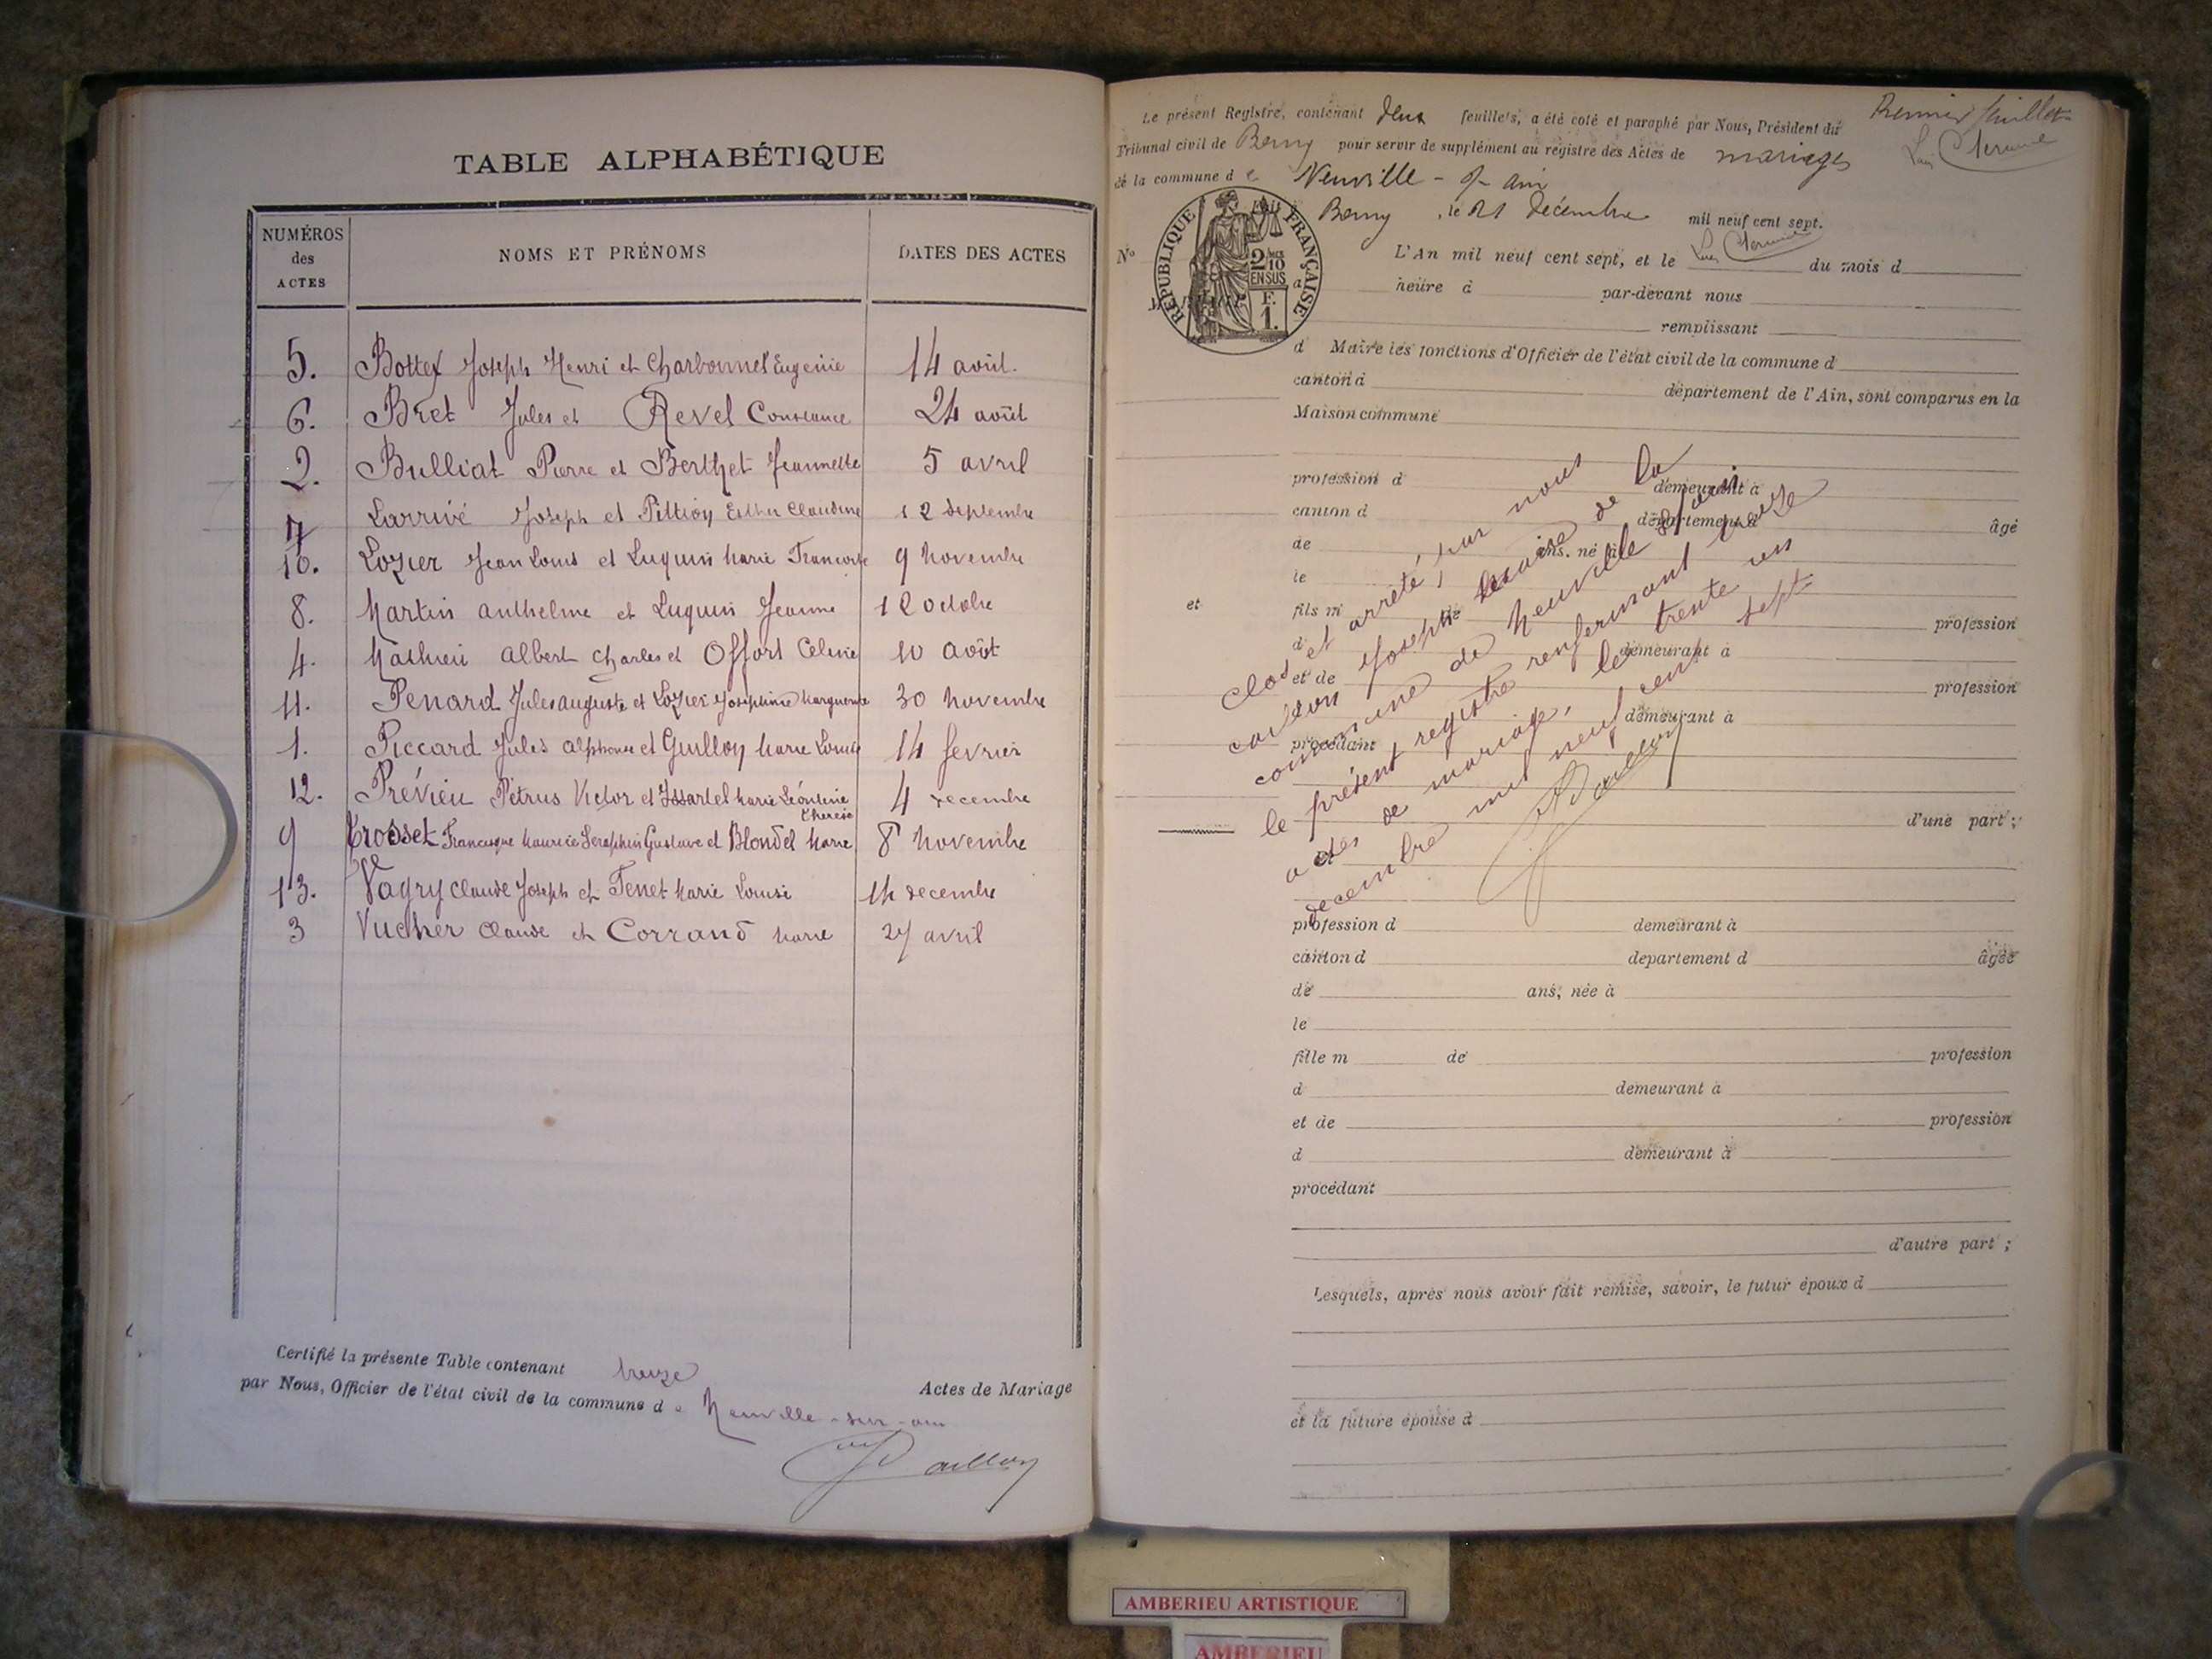 TABLE ALPHABÉTIQUE
NUMÉROS des ACTES
NOMS ET PRÉNOMS
DATES DES ACTES
5. Bottex Joseph Henri et Charbonnet Eugenie 14 août.
6. Bret Jules et Revel Constance 24 août
2. Bulliat Pierre et Berthet Jeannette 5 avril
7 Larrivé Joseph et Pittion Esther Claudine 12 septembre
10. Lozier Jean Louis et Luquin Marie Francoise 9 Novembre
8. Martin Anthelme et Luquin Jeanne 12 octobre
4. Mathieu Albert Charles et Offort Celine 10 août
11. Penard Jules auguste et Lozier Josephine Marguerite 30 Novembre
1. Piccard Jules Alphonse et Guilloy Marie Louise 14 fevrier
12. Prévieu Pétrus Victor et Issartel Marie Léontine Therese 4 decembre
9 Trosset Francisque Maurice Seraphin Gustave et Blondel Marie 8 Novembre
13. Vagry Claude Joseph et Tenet Marie Louise 14 decembre
3 Vucher Claude et Corrand Marie 27 avril
Certifié la présente Table contenant treize Actes de Mariage
par Nous, Officier de l'état civil de la commune de Neuville-sur-ain
Premier feuillet
Le présent Registre, contenant deux feuillets, a été coté et paraphé par Nous, Président du
Tribunal civil de Bourg pour servir de supplément au registre des Actes de mariages
de la commune de Neuville-s-ain
Bourg, le 21 Décembre mil neuf cent sept.
RÉPUBLIQUE FRANÇAISE
2/10 EN SUS
F. 1.
No L'An mil neuf cent sept, et le du mois d
à heure d par-devant nous
remplissant
d Maire les fonctions d'Officier de l'état civil de la commune d
canton d département de l'Ain, sont comparus en la
Maison commune
profession d demeurant à
canton d département d âgé
de ans, né à
le
et fils m de profession
d demeurant à
et de profession
demeurant à
procédant
d'une part;
Clos et arrêté, par nous
Joseph Maire de la
commune de Neuville s/ ain
le présent registre renfermant treize
actes de mariage, le trente un
decembre mil neuf cent sept
et
profession d demeurant à
canton d departement d âgée
de ans, née à
le
fille m de profession
d demeurant à
et de profession
d demeurant à
procédant
d'autre part;
Lesquels, après nous avoir fait remise, savoir, le futur époux d
et la future épouse d
AMBERIEU ARTISTIQUE
AMBERIEU